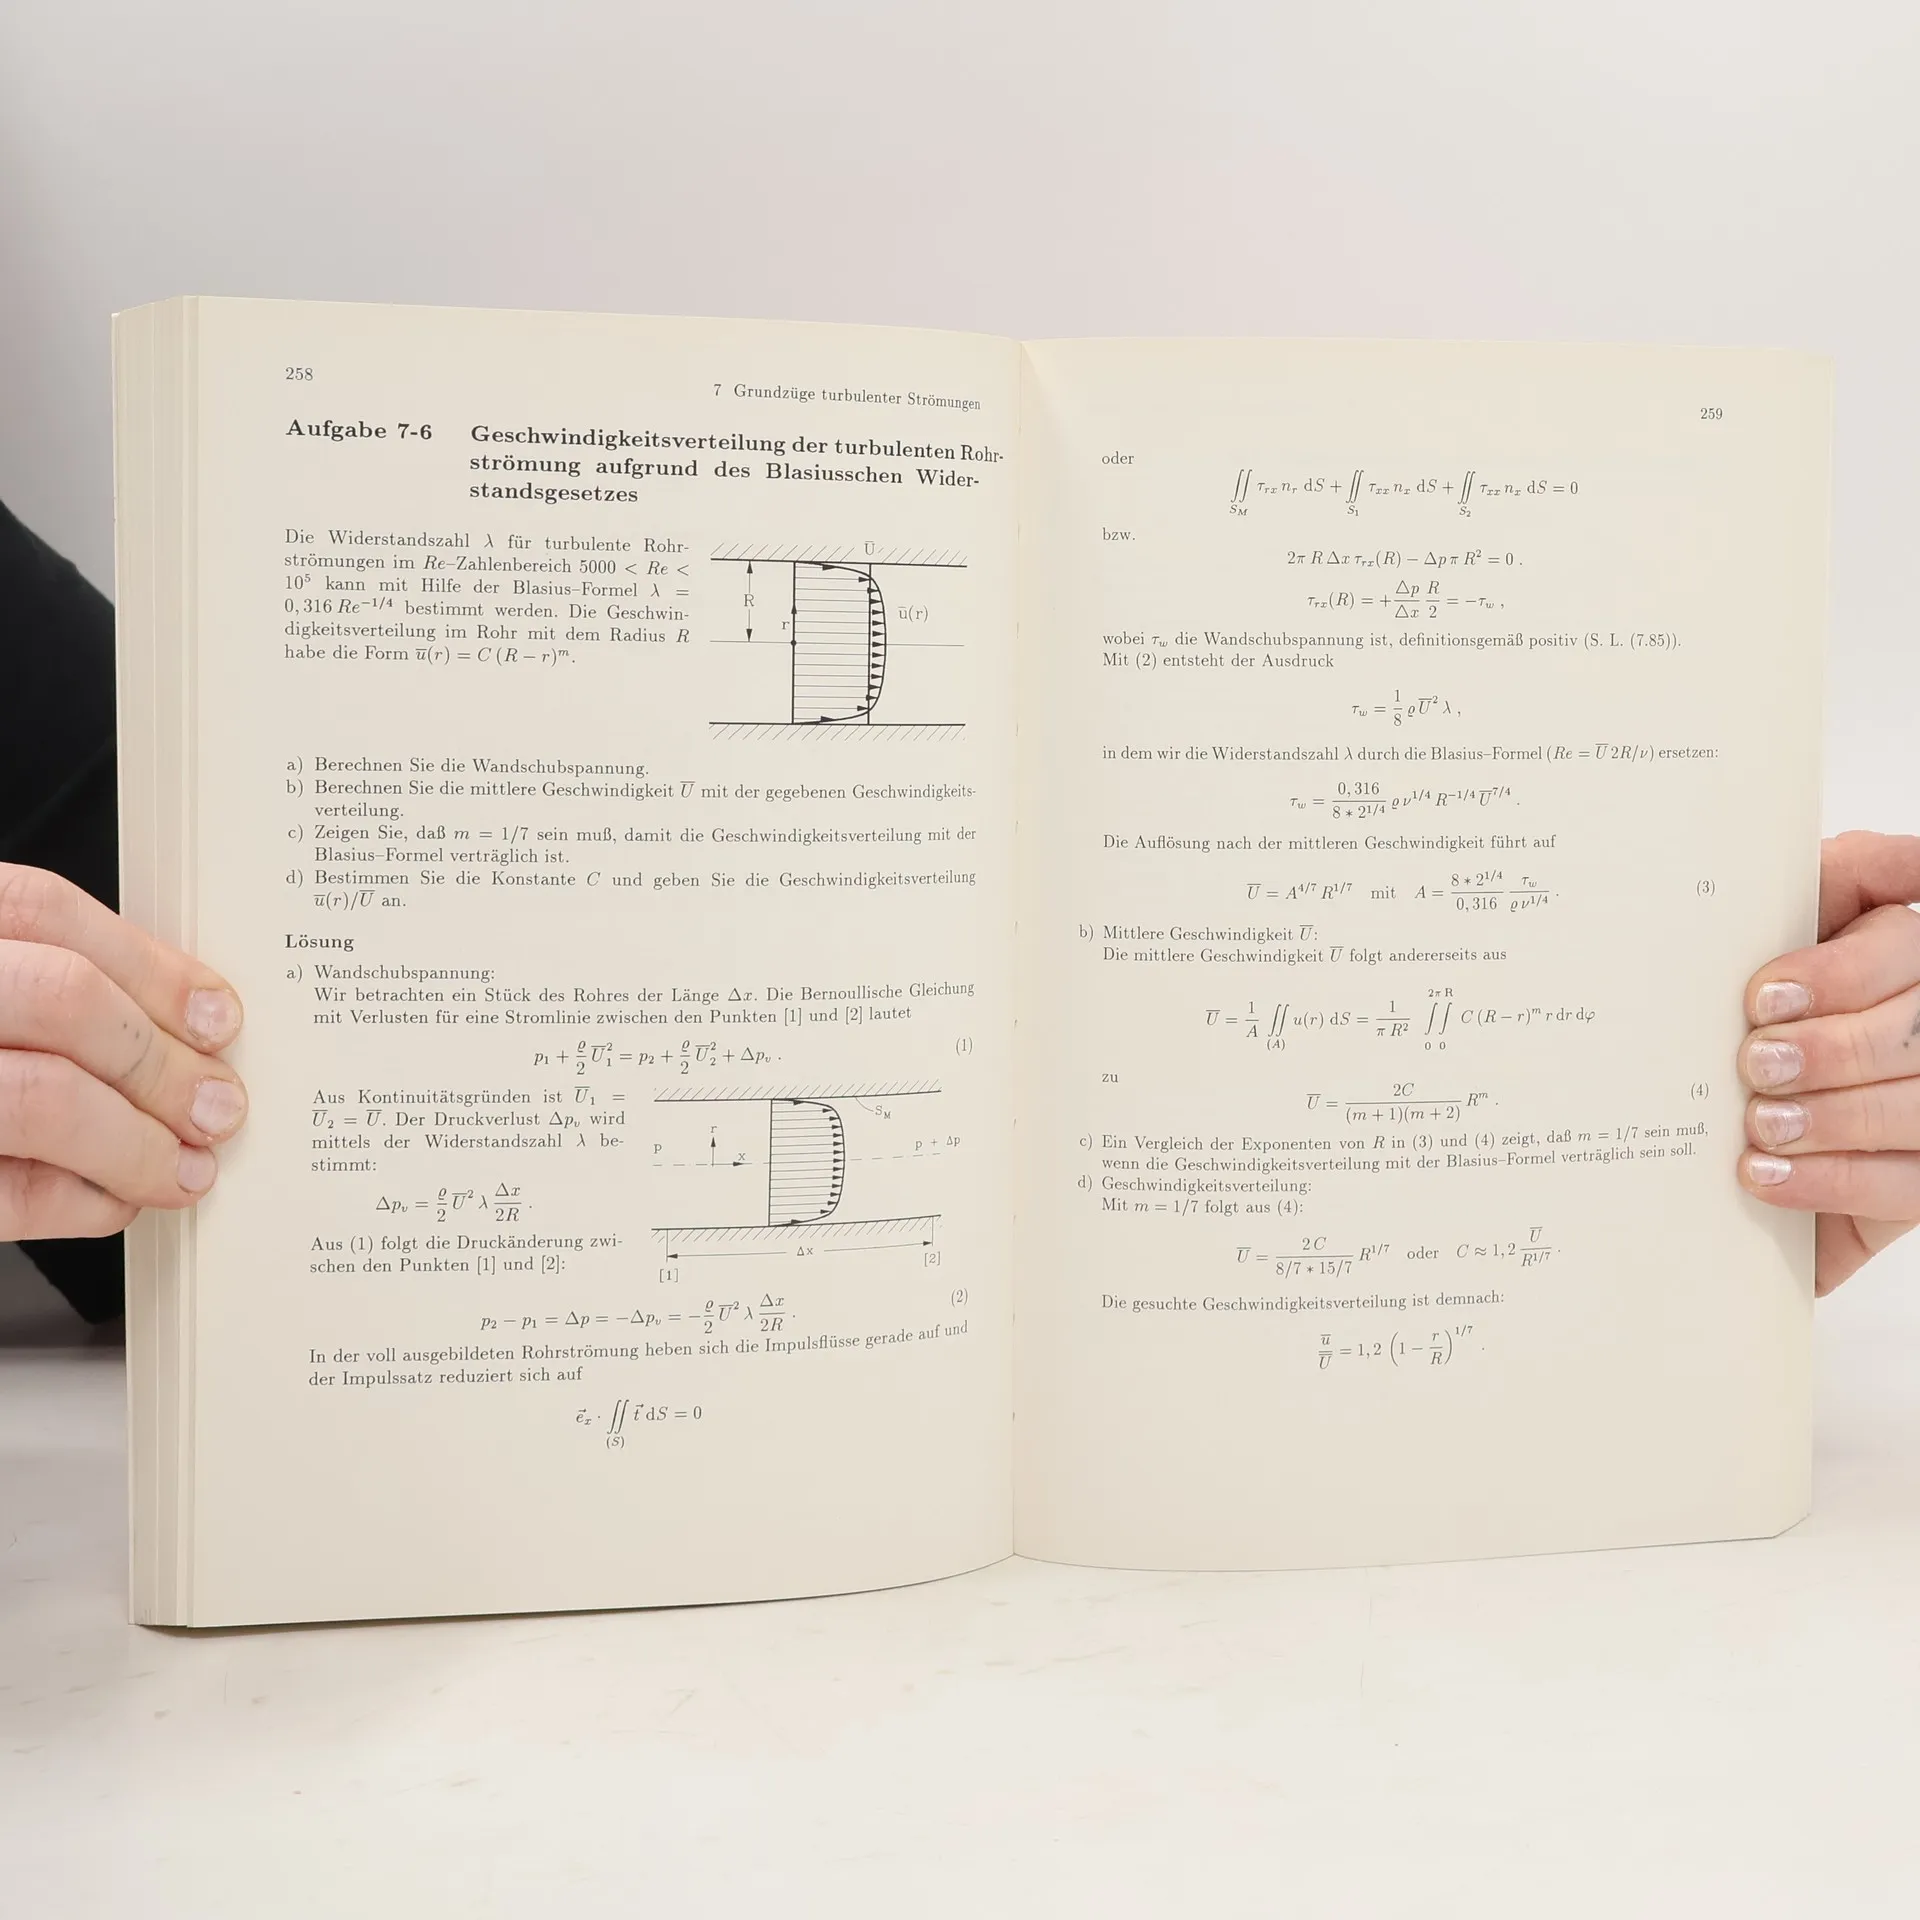 258
7 Grundzüge turbulenter Strömungen
Aufgabe 7-6 Geschwindigkeitsverteilung der turbulenten Rohr-
strömung aufgrund des Blasiusschen Wider-
standsgesetzes
Die Widerstandszahl λ für turbulente Rohr-
strömungen im Re–Zahlenbereich 5000 < Re <
10⁵ kann mit Hilfe der Blasius–Formel λ =
0,316 Re^{−1/4} bestimmt werden. Die Geschwin-
digkeitsverteilung im Rohr mit dem Radius R
habe die Form u̅(r) = C (R − r)^m.
U̅
R
r
u̅(r)
a) Berechnen Sie die Wandschubspannung.
b) Berechnen Sie die mittlere Geschwindigkeit U̅ mit der gegebenen Geschwindigkeits-
verteilung.
c) Zeigen Sie, daß m = 1/7 sein muß, damit die Geschwindigkeitsverteilung mit der
Blasius–Formel verträglich ist.
d) Bestimmen Sie die Konstante C und geben Sie die Geschwindigkeitsverteilung
u̅(r)/U̅ an.
Lösung
a) Wandschubspannung:
Wir betrachten ein Stück des Rohres der Länge Δx. Die Bernoullische Gleichung
mit Verlusten für eine Stromlinie zwischen den Punkten [1] und [2] lautet
p₁ + ϱ/2 U̅₁² = p₂ + ϱ/2 U̅₂² + Δp_v . (1)
Aus Kontinuitätsgründen ist U̅₁ =
U̅₂ = U̅. Der Druckverlust Δp_v wird
mittels der Widerstandszahl λ be-
stimmt:
Δp_v = ϱ/2 U̅² λ Δx/2R .
Aus (1) folgt die Druckänderung zwi-
schen den Punkten [1] und [2]:
S_M
p
r
x
p + Δp
Δx
[1]
[2]
p₂ − p₁ = Δp = −Δp_v = −ϱ/2 U̅² λ Δx/2R . (2)
In der voll ausgebildeten Rohrströmung heben sich die Impulsflüsse gerade auf und
der Impulssatz reduziert sich auf
e⃗_x · ∬_(S) t⃗ dS = 0
259
oder
∬_{S_M} τ_rx n_r dS + ∬_{S₁} τ_xx n_x dS + ∬_{S₂} τ_xx n_x dS = 0
bzw.
2π R Δx τ_rx(R) − Δp π R² = 0 .
τ_rx(R) = + Δp/Δx R/2 = −τ_w ,
wobei τ_w die Wandschubspannung ist, definitionsgemäß positiv (S. L. (7.85)).
Mit (2) entsteht der Ausdruck
τ_w = 1/8 ϱ U̅² λ ,
in dem wir die Widerstandszahl λ durch die Blasius–Formel (Re = U̅ 2R/ν) ersetzen:
τ_w = 0,316/(8 ∗ 2^{1/4}) ϱ ν^{1/4} R^{−1/4} U̅^{7/4} .
Die Auflösung nach der mittleren Geschwindigkeit führt auf
U̅ = A^{4/7} R^{1/7} mit A = (8 ∗ 2^{1/4})/0,316 τ_w/(ϱ ν^{1/4}) . (3)
b) Mittlere Geschwindigkeit U̅:
Die mittlere Geschwindigkeit U̅ folgt andererseits aus
U̅ = 1/A ∬_(A) u(r) dS = 1/(π R²) ∫₀^{2π} ∫₀^R C (R − r)^m r dr dφ
zu
U̅ = 2C/((m + 1)(m + 2)) R^m . (4)
c) Ein Vergleich der Exponenten von R in (3) und (4) zeigt, daß m = 1/7 sein muß,
wenn die Geschwindigkeitsverteilung mit der Blasius–Formel verträglich sein soll.
d) Geschwindigkeitsverteilung:
Mit m = 1/7 folgt aus (4):
U̅ = 2 C/(8/7 ∗ 15/7) R^{1/7} oder C ≈ 1,2 U̅/R^{1/7} .
Die gesuchte Geschwindigkeitsverteilung ist demnach:
u̅/U̅ = 1,2 (1 − r/R)^{1/7} .